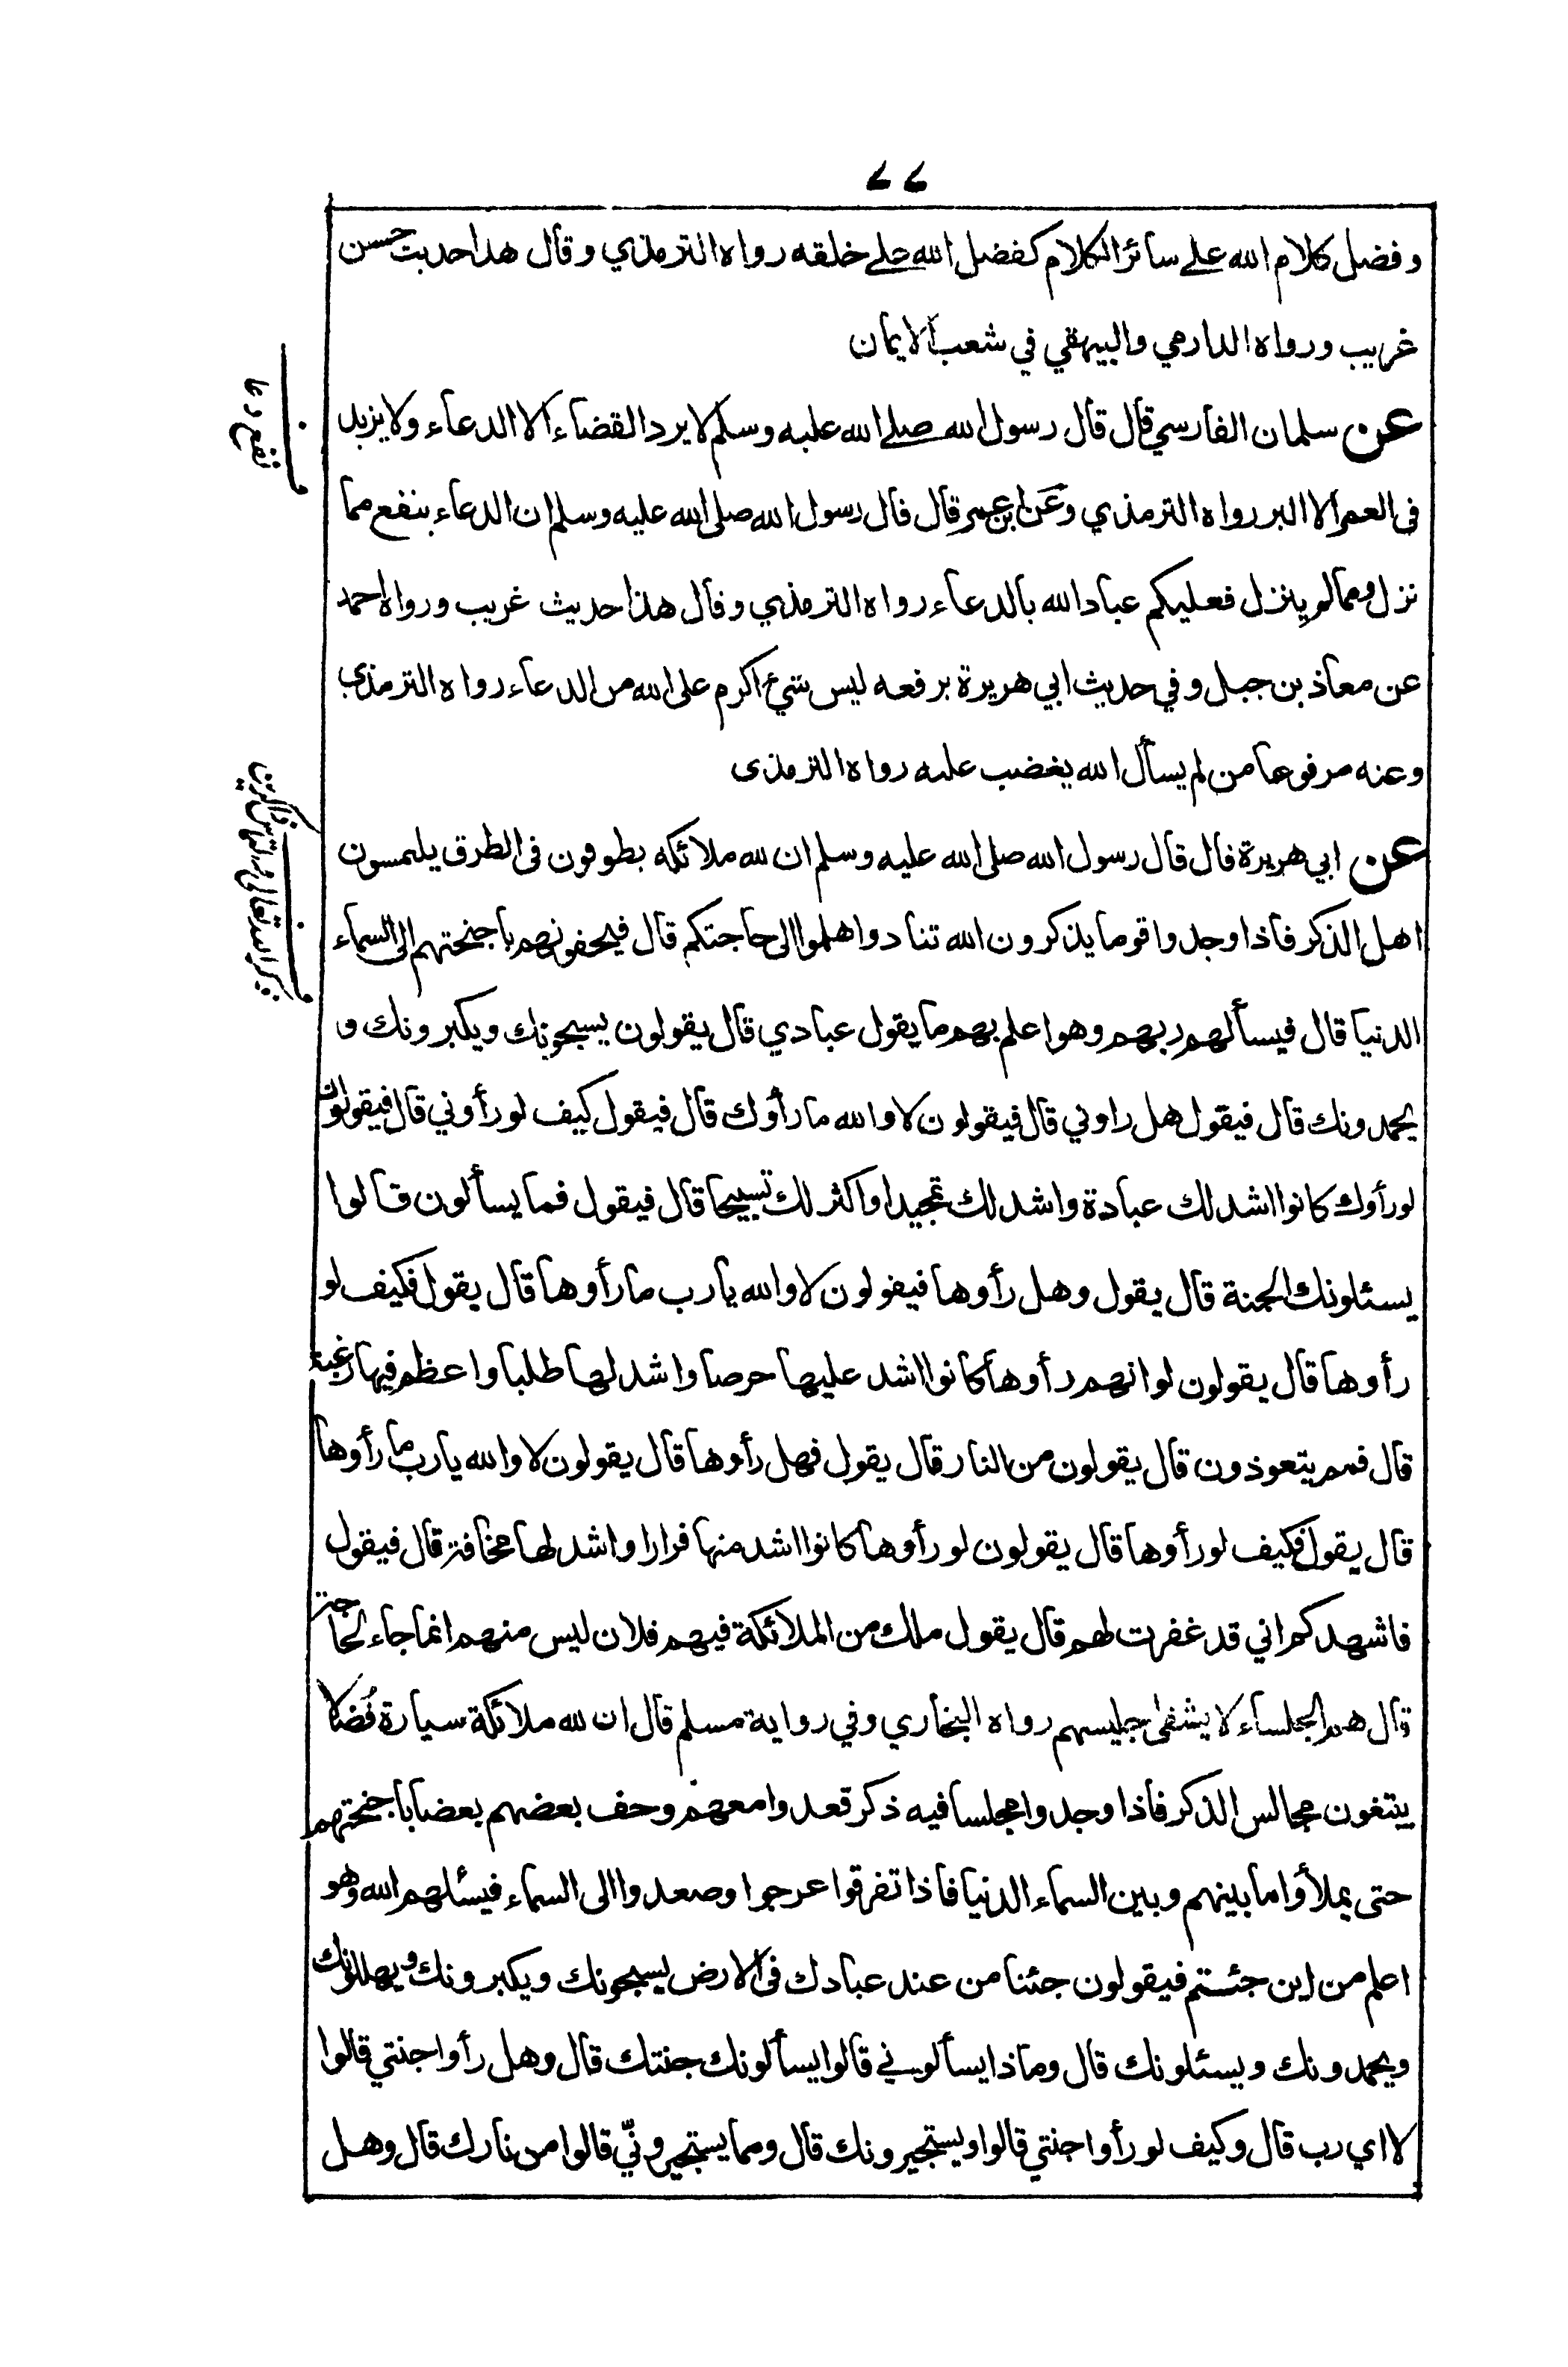 ۷۷
وفضل كلام الله على سائر الكلام كفضل الله على خلقه رواه الترمذي وقال هذا حديث حسن
غريب ورواه الدارمي والبيهقي في شعب الايمان
عن سلمان الفارسي قال قال رسول الله صلى الله عليه وسلم لا يرد القضاء الا الدعاء ولا يزيد
في العمر الا البر رواه الترمذي وعن ابن عمر قال قال رسول الله صلى الله عليه وسلم ان الدعاء ينفع مما
نزل ومما لم ينزل فعليكم عباد الله بالدعاء رواه الترمذي وقال هذا حديث غريب ورواه احمد
عن معاذ بن جبل وفي حديث ابي هريرة يرفعه ليس شيء اكرم على الله من الدعاء رواه الترمذي
وعنه مرفوعا من لم يسأل الله يغضب عليه رواه الترمذى
عن ابي هريرة قال قال رسول الله صلى الله عليه وسلم ان لله ملائكة يطوفون فى الطرق يلتمسون
اهل الذكر فاذا وجدوا قوما يذكرون الله تنادوا هلموا الى حاجتكم قال فيحفونهم باجنحتهم الى السماء
الدنيا قال فيسألهم ربهم وهو اعلم بهم ما يقول عبادي قال يقولون يسبحونك ويكبرونك و
يحمدونك قال فيقول هل راوني قال فيقولون لا والله ما رأوك قال فيقول كيف لو رأوني قال فيقولون
لو رأوك كانوا اشد لك عبادة واشد لك تمجيدا واكثر لك تسبيحا قال فيقول فما يسألون قالوا
يسئلونك الجنة قال يقول وهل رأوها فيقولون لا والله يا رب ما رأوها قال يقول فكيف لو
رأوها قال يقولون لو انهم رأوها كانوا اشد عليها حرصا واشد لها طلبا واعظم فيها رغبة
قال فمم يتعوذون قال يقولون من النار قال يقول فهل رأوها قال يقولون لا والله يا رب ما رأوها
قال يقول فكيف لو رأوها قال يقولون لو رأوها كانوا اشد منها فرارا واشد لها مخافة قال فيقول
فاشهدكم اني قد غفرت لهم قال يقول ملك من الملائكة فيهم فلان ليس منهم انما جاء لحاجة
قال هم الجلساء لا يشقى جليسهم رواه البخاري وفي رواية مسلم قال ان لله ملائكة سيارة فُضلا
يبتغون مجالس الذكر فاذا وجدوا مجلسا فيه ذكر قعدوا معهم وحف بعضهم بعضا باجنحتهم
حتى يملأوا ما بينهم وبين السماء الدنيا فاذا تفرقوا عرجوا وصعدوا الى السماء فيسئلهم الله وهو
اعلم من اين جئتم فيقولون جئنا من عند عبادك فى الارض يسبحونك ويكبرونك ويهللونك
ويحمدونك ويسئلونك قال وماذا يسألوني قالوا يسألونك جنتك قال وهل رأوا جنتي قالوا
لا اي رب قال وكيف لو رأوا جنتي قالوا ويستجيرونك قال ومما يستجيرونّي قالوا من نارك قال وهل
نفع دعا